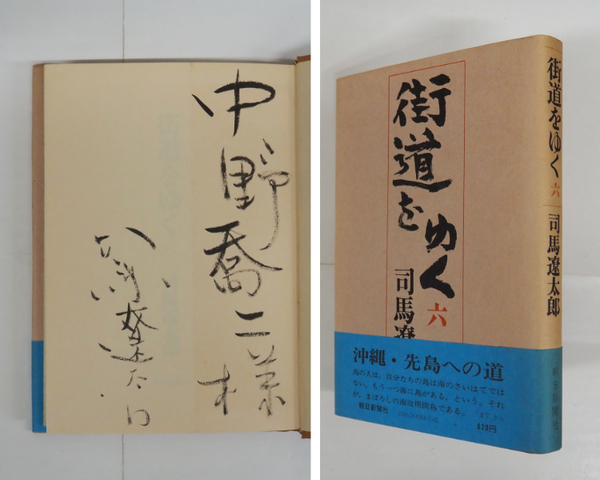 中野喬二様
司馬遼太郎
街道をゆく 六
司馬遼
街道をゆく 六 司馬遼太郎
朝日新聞社
沖縄・先島への道
島の人は、自分たちの島は南のさいはてでは
ない、もう一つ南に島がある、という。それ
が、まぼろしの南波照間島である。
朝日新聞社